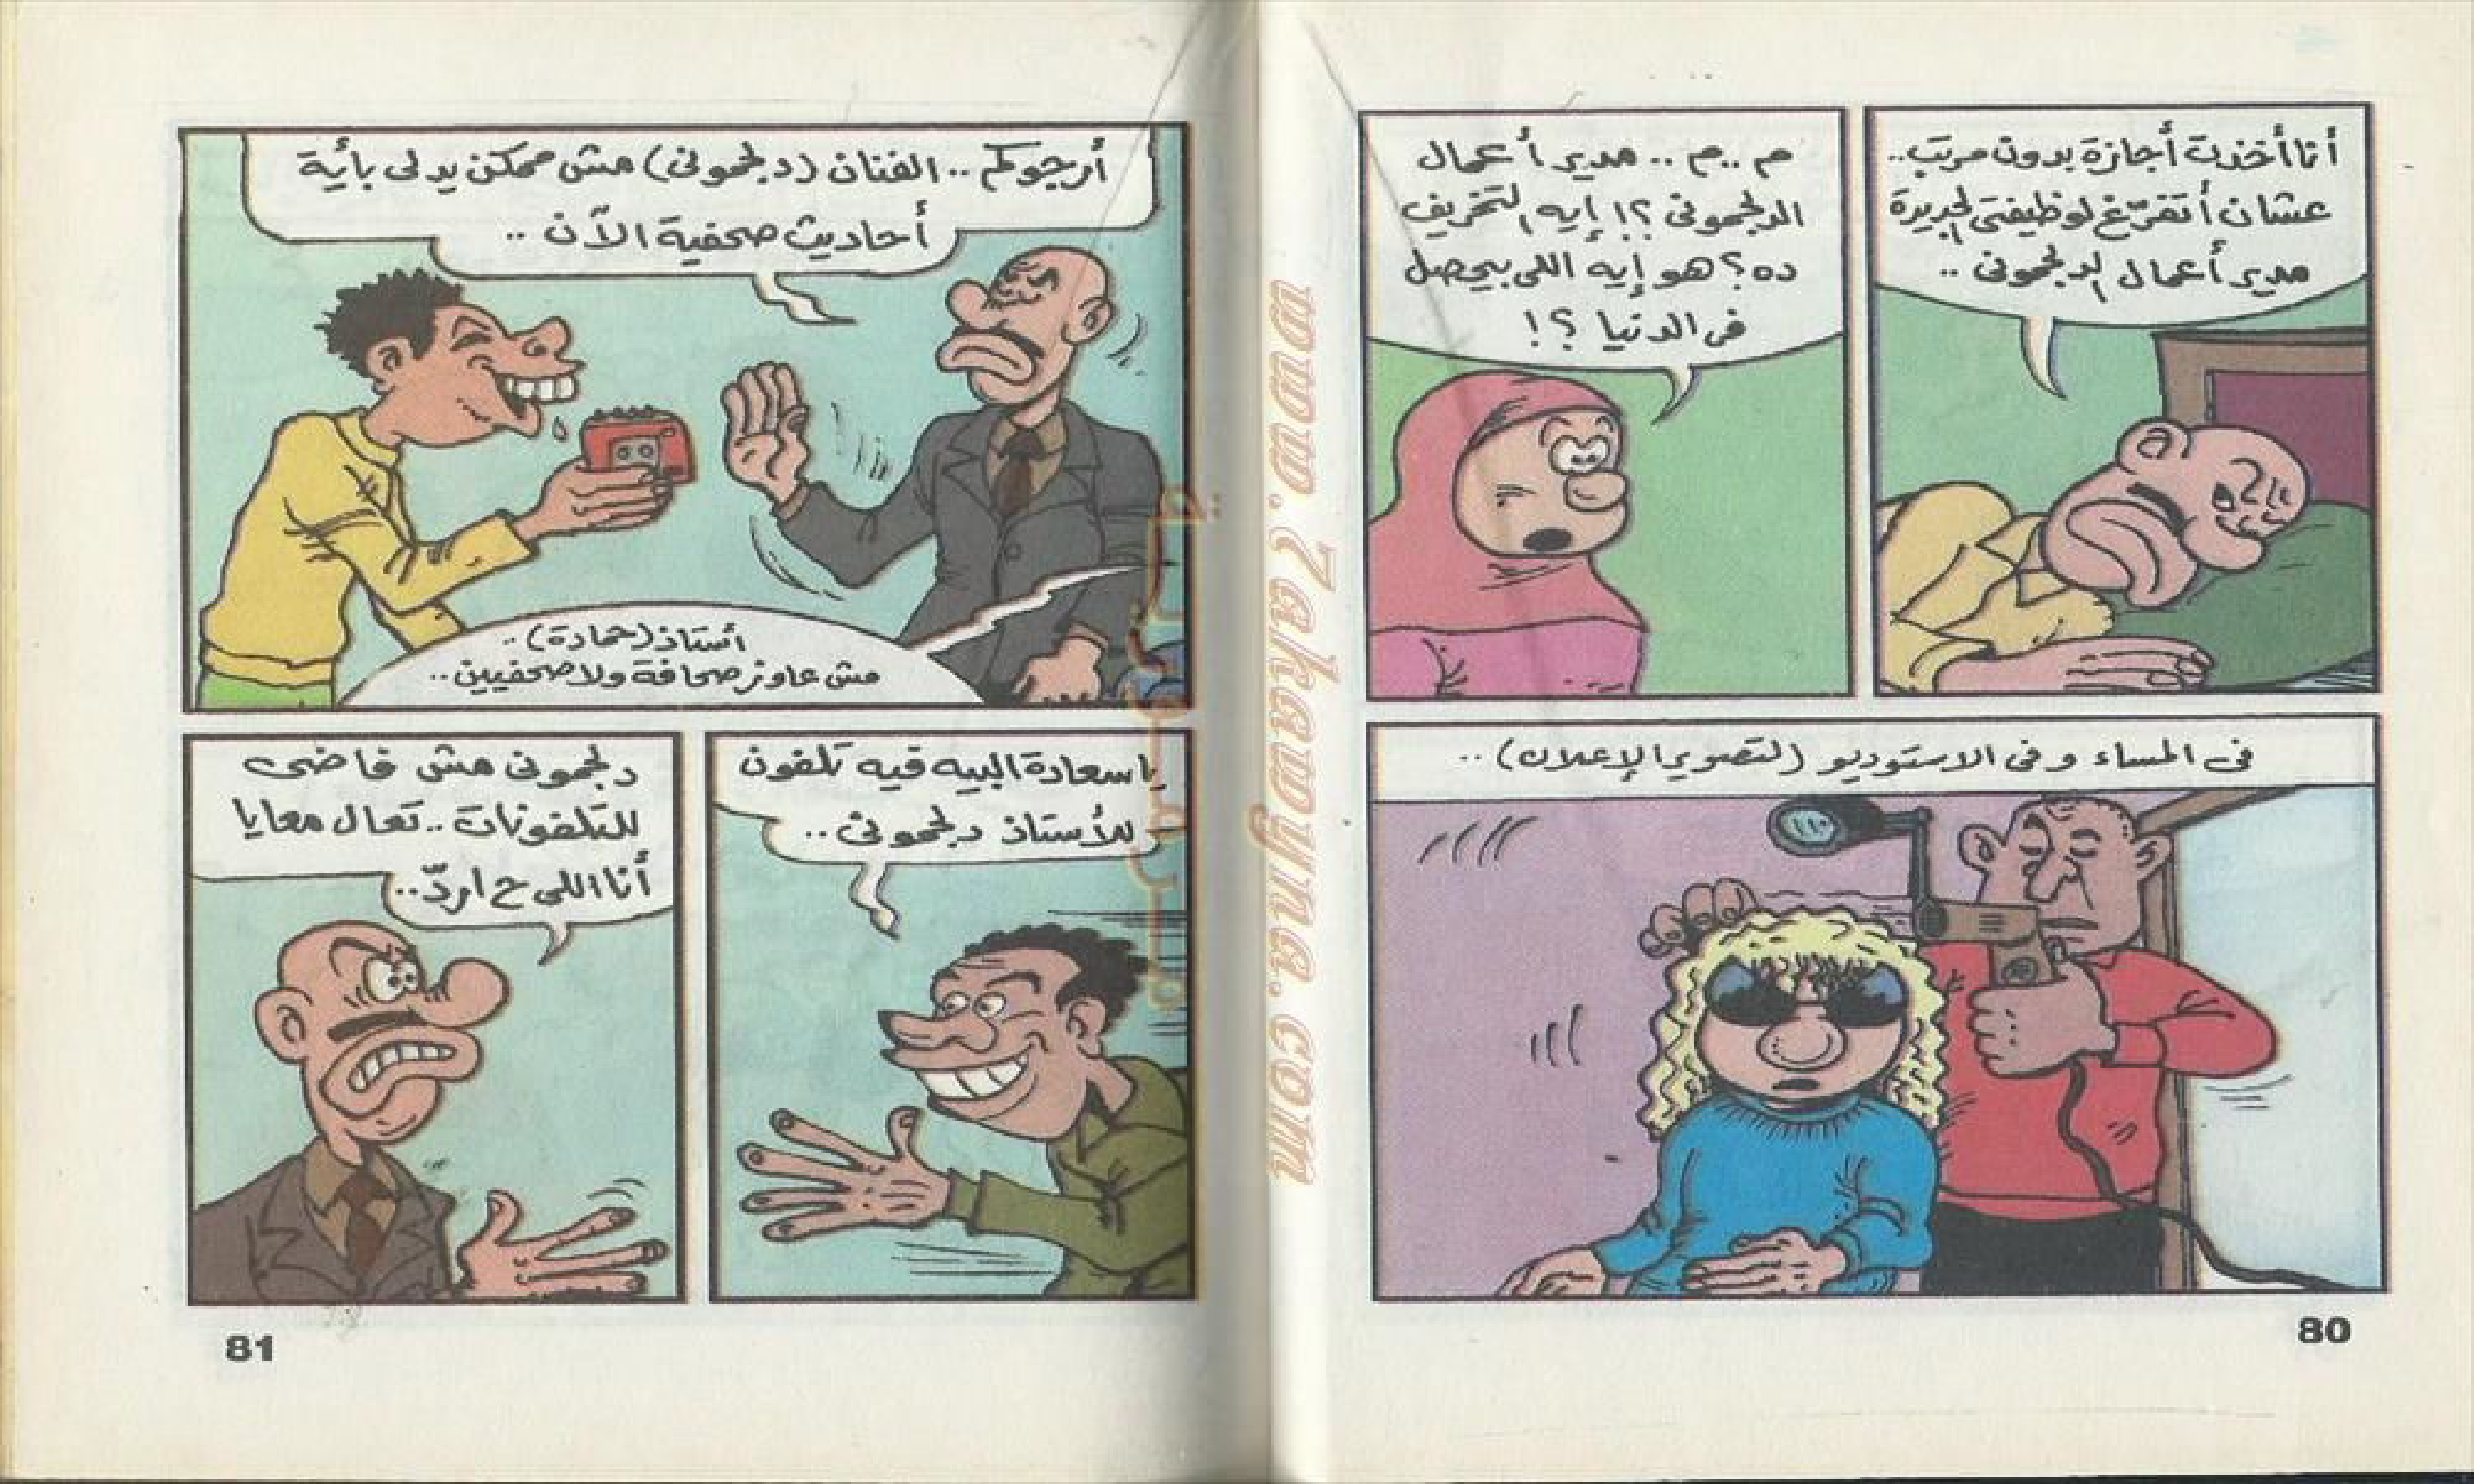 أنا أخذت أجازة بدون مرتب..
عشان أتفرّغ لوظيفتى الجديدة
مدير أعمال الدلجمونى ..
م ..م .. مدير أعمال
الدلجمونى ؟! إيه التخريف
ده ؟ هو إيه اللى بيحصل
فى الدنيا ؟!
فى المساء وفى الاستوديو (لتصوير الإعلان) ..
80
أرجوكم .. الفنان (دلجمونى) مش ممكن يدلى بأية
أحاديث صحفية الآن ..
أستاذ (حمادة) ..
مش عاوز صحافة ولا صحفيين ..
يا سعادة البيه فيه تلفون
للأستاذ دلجمونى ..
دلجمونى مش فاضى
للتلفونات .. تعال معايا
أنا اللى ح اردّ..
81
www.Zakawyna.com